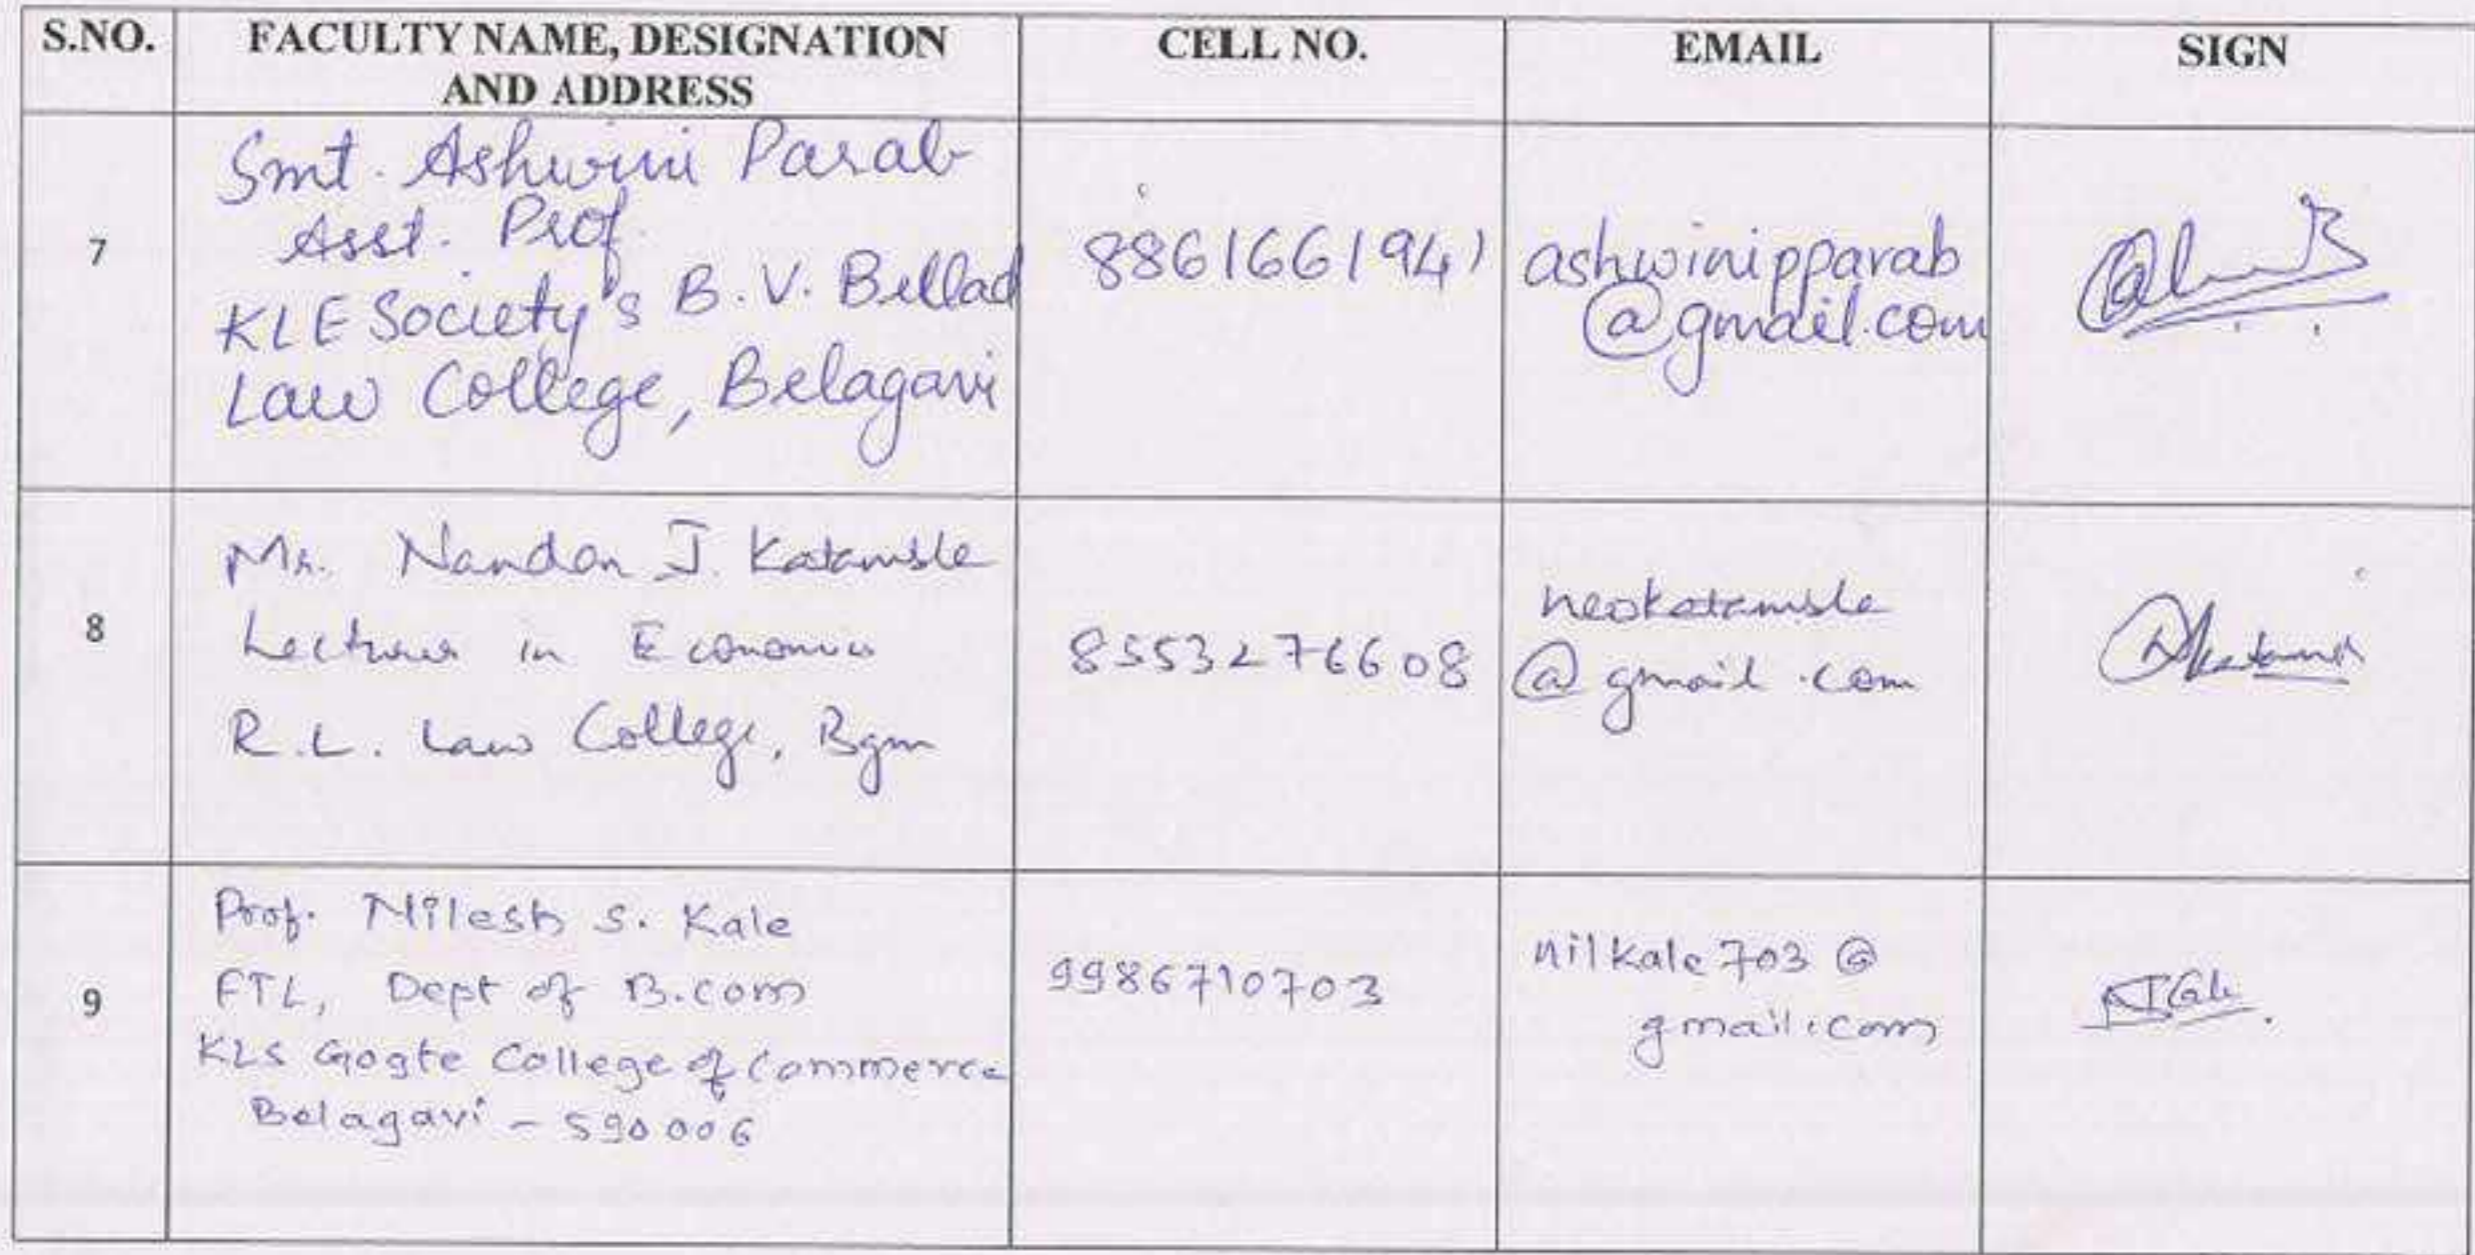 S.NO. FACULTY NAME, DESIGNATION AND ADDRESS CELL NO. EMAIL SIGN
7
Smt. Ashwini Parab
Asst. Prof.
KLE Society's B.V. Bellad
Law College, Belagavi
8861661941
ashwinipparab
@gmail.com
8
Mr. Nandan J. Katamble
Lecturer in Economics
R.L. Law College, Bgm
8553276608
neokatamble
@gmail.com
9
Prof. Nilesh S. Kale
FTL, Dept of B.com
KLS Gogte College of Commerce
Belagavi - 590006
9986710703
nilkale703@
gmail.com